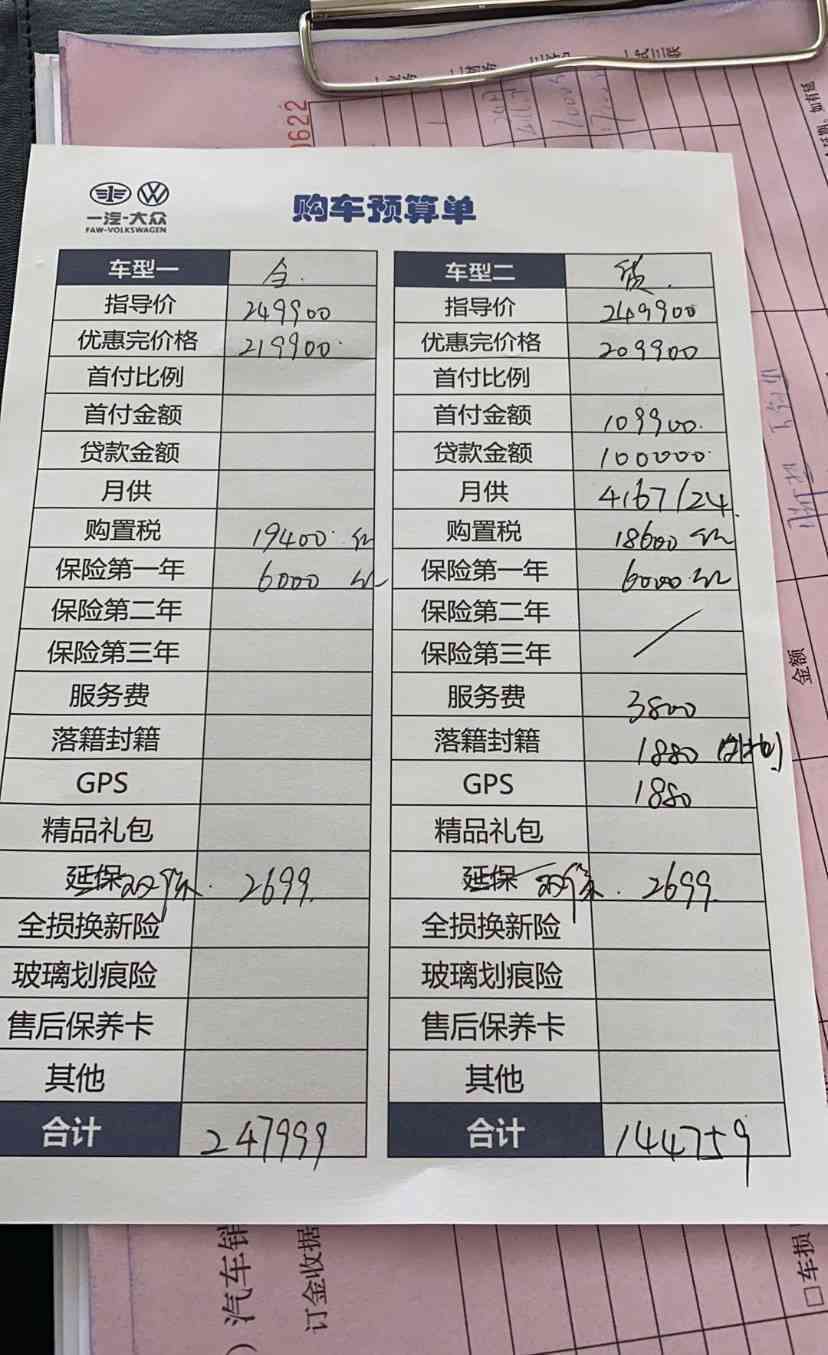 0622
一汽-大众
FAW-VOLKSWAGEN
购车预算单
车型一 全.
指导价 249900
优惠完价格 219900.
首付比例
首付金额
贷款金额
月供
购置税 19400.
保险第一年 6000
保险第二年
保险第三年
服务费
落籍封籍
GPS
精品礼包
延保 双保. 2699.
全损换新险
玻璃划痕险
售后保养卡
其他
合计 247999
车型二 贷.
指导价 249900
优惠完价格 209900
首付比例
首付金额 109900.
贷款金额 100000.
月供 4167/24.
购置税 18600
保险第一年 6000.
保险第二年
保险第三年 /
服务费 3800
落籍封籍 1880
GPS 1880
精品礼包
延保 双保. 2699.
全损换新险
玻璃划痕险
售后保养卡
其他
合计 144759
金额
汽车销
订金收据
□车损